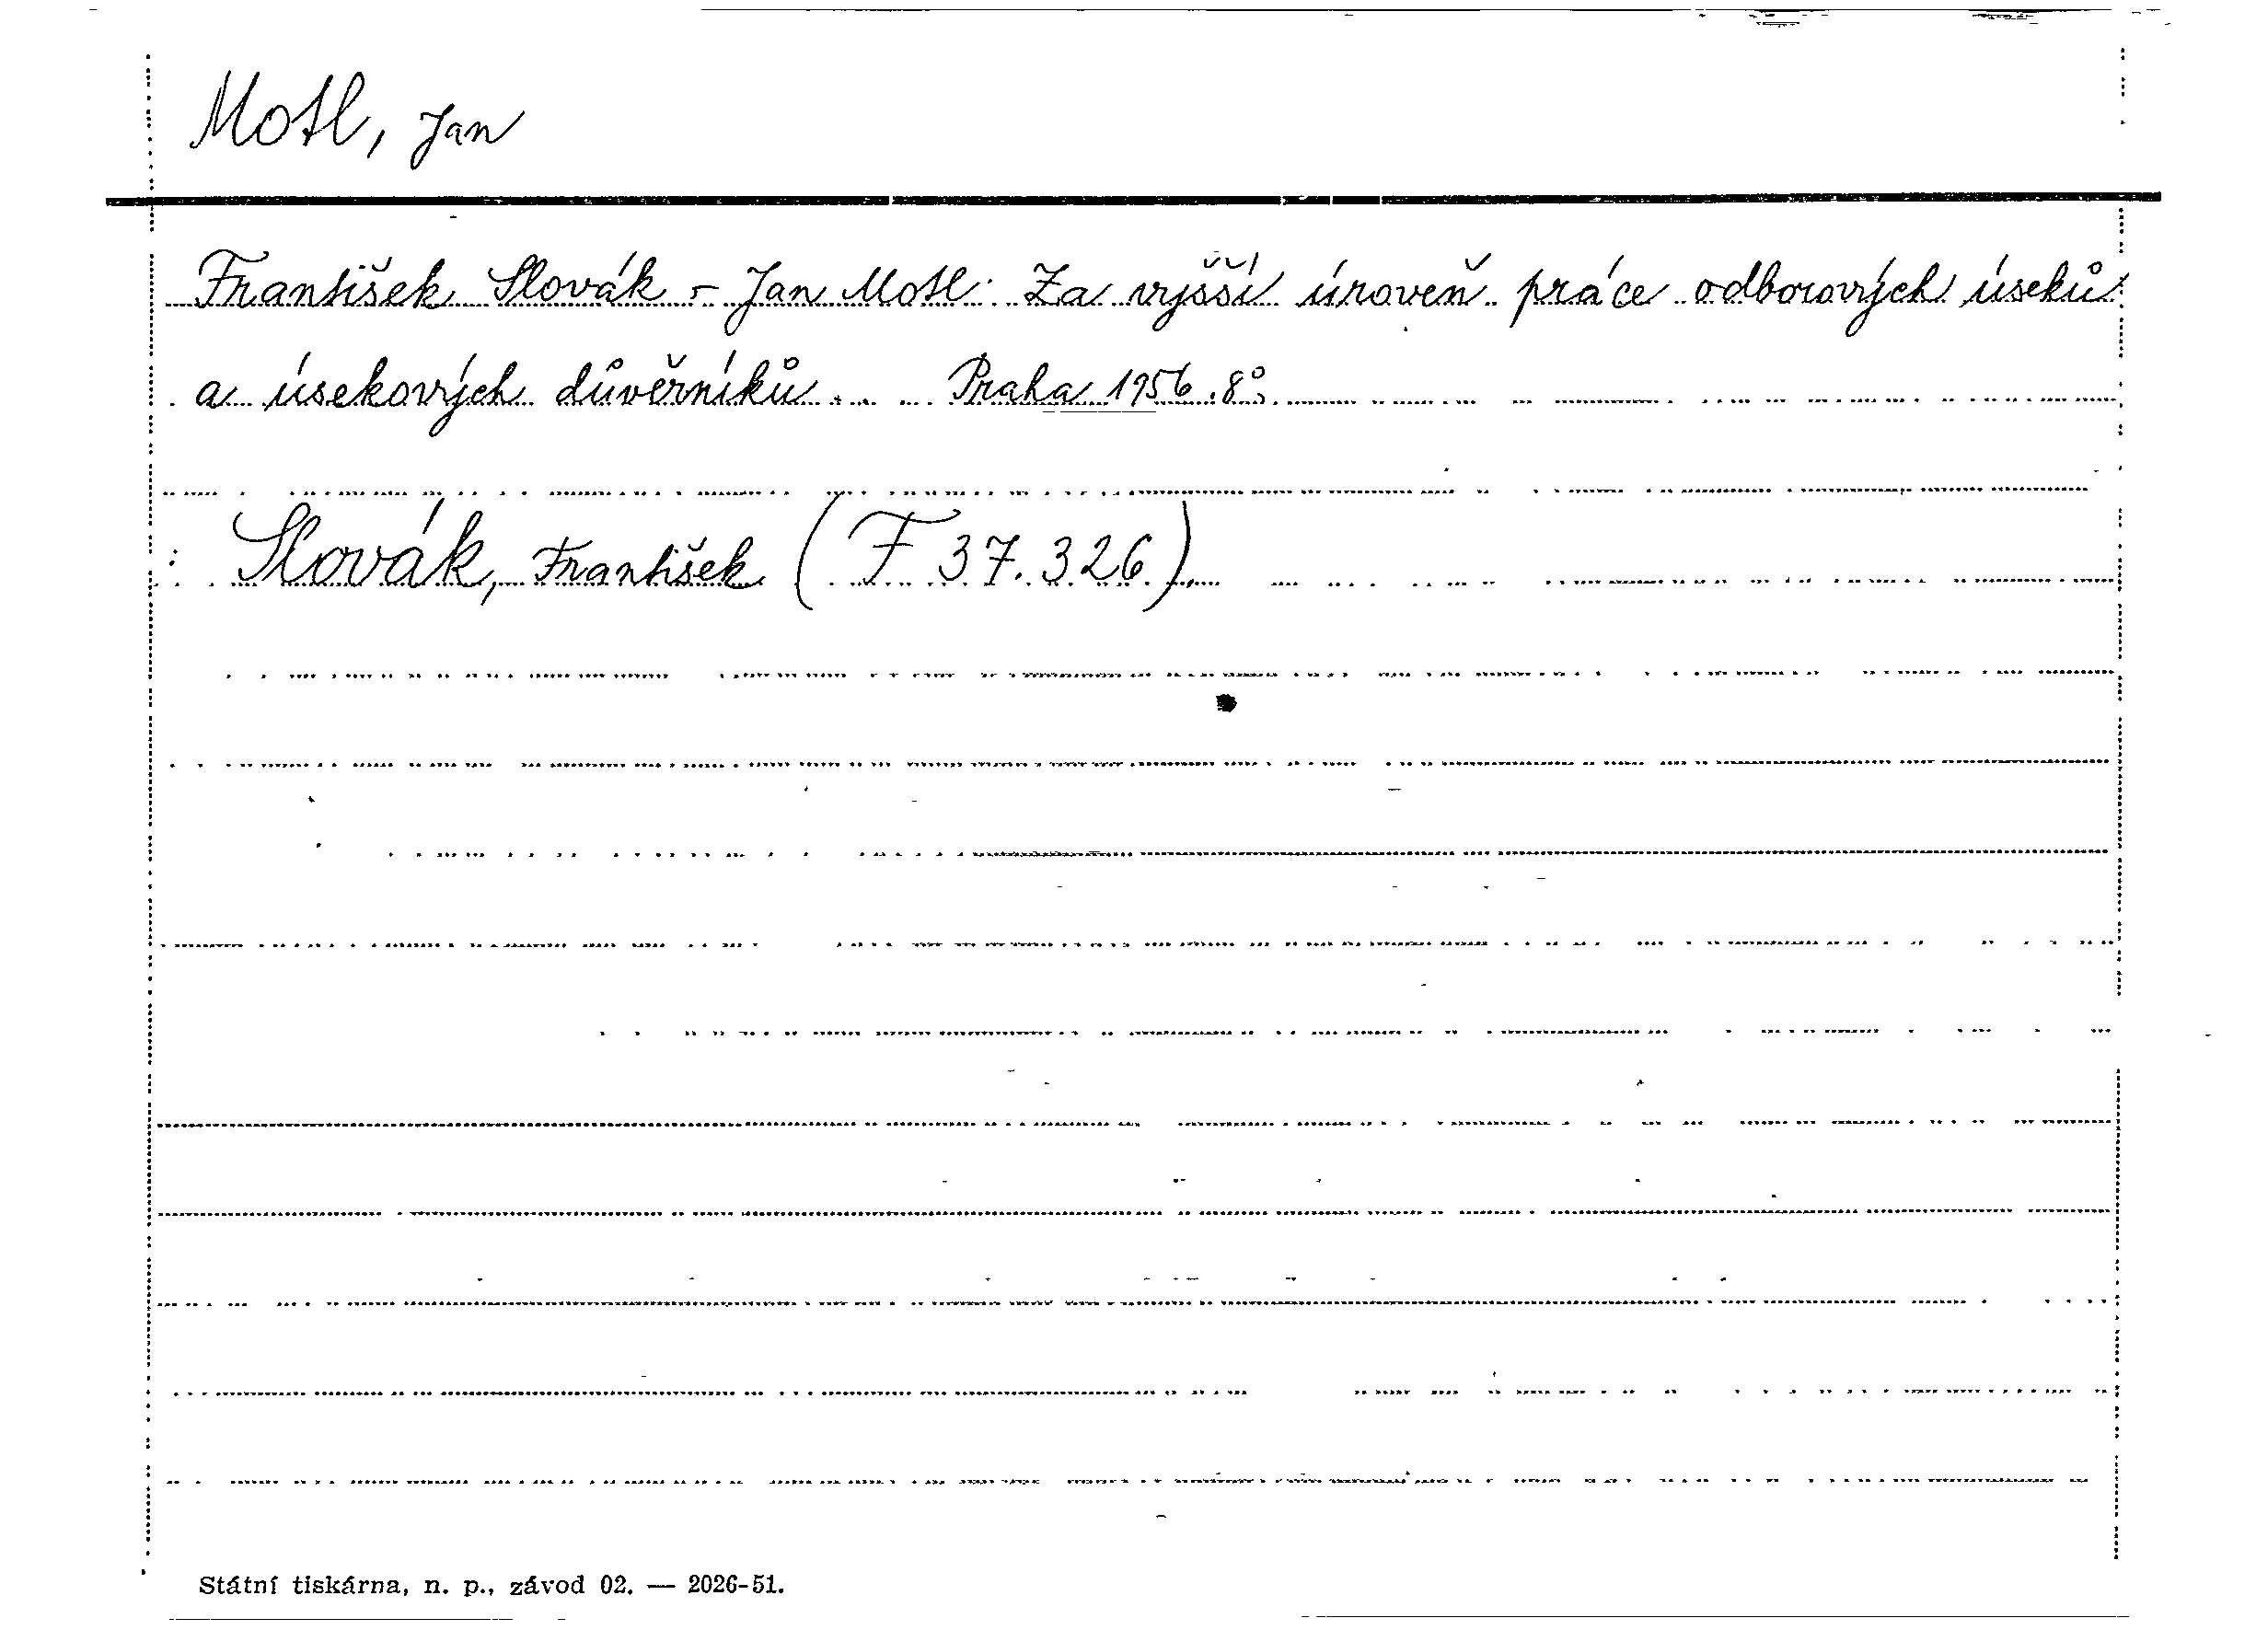 Motl, Jan
František Slovák - Jan Motl: Za vyšší úroveň práce odborových úseků
a úsekových důvěrníků. Praha 1956. 8°.
Slovák, František (F 37.326).
Státní tiskárna, n. p., závod 02. — 2026-51.